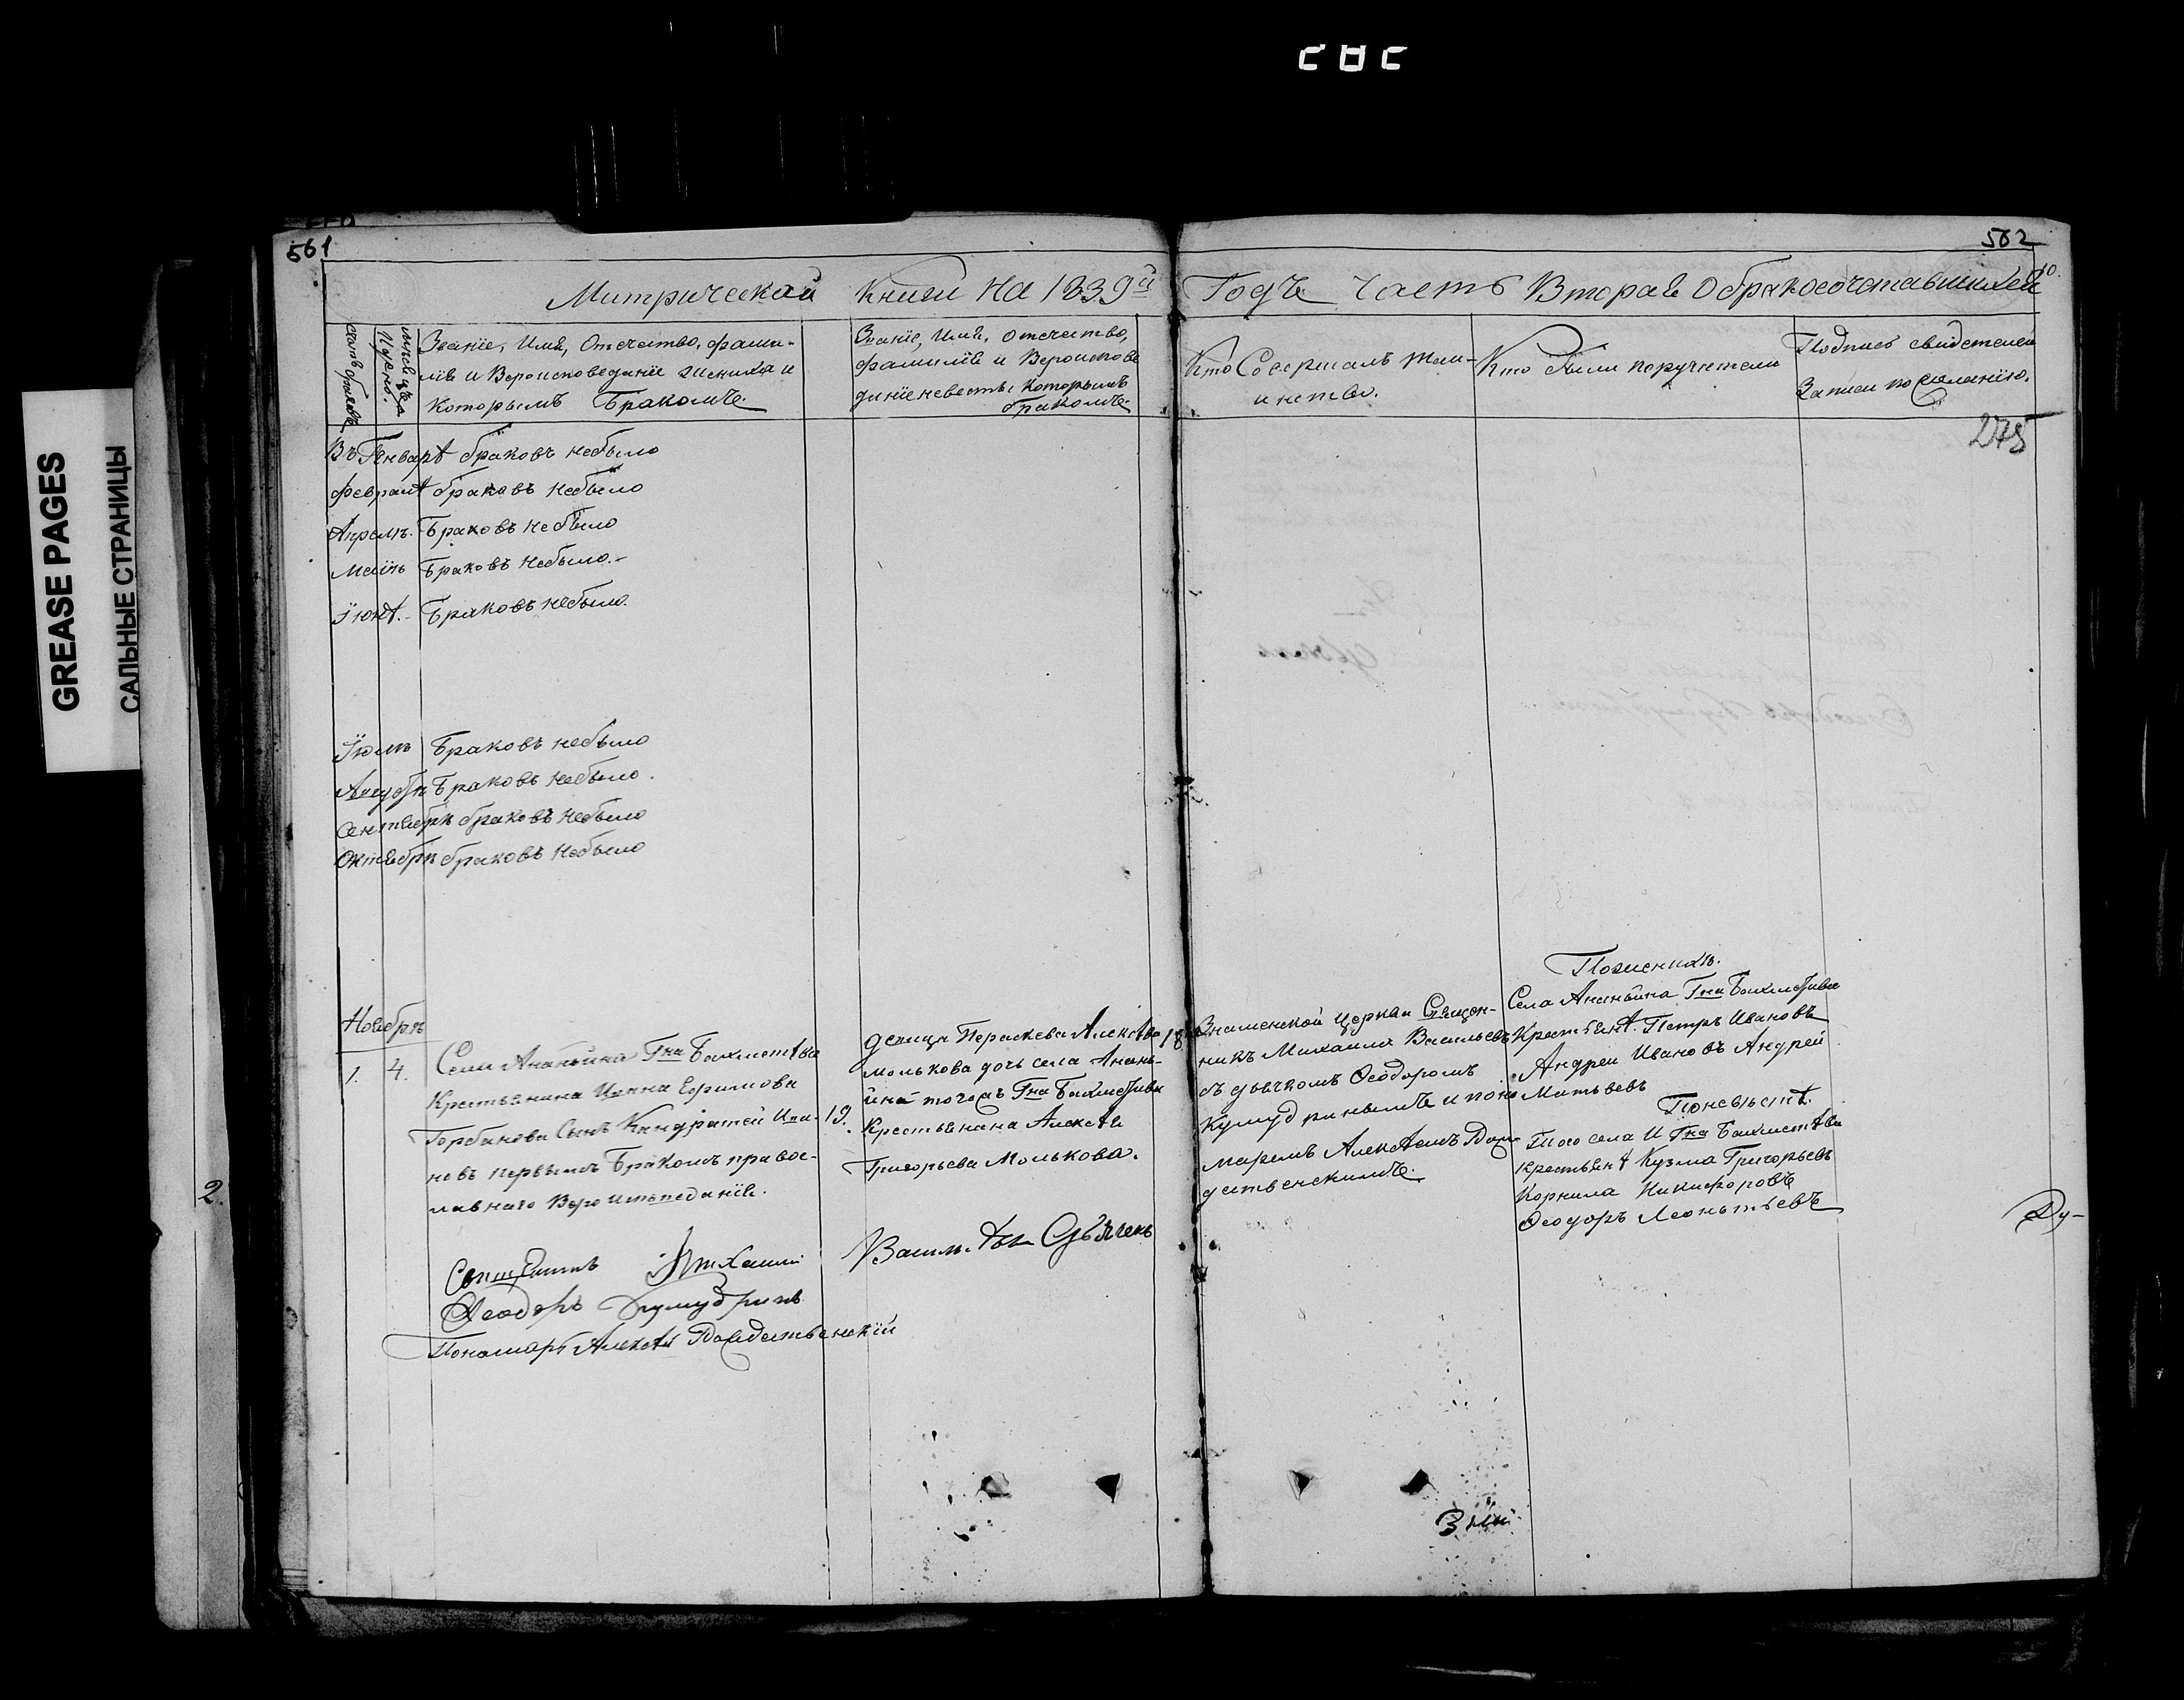 GREASE PAGES
САЛЬНЫЕ СТРАНИЦЫ
2.
561
562
Митрической Книги На 1839й Годъ Часть Вторая О бракосочетавшихся
10.
Званіе, Имя, Отечество, фами-
лія и Вероисповеданіе жениха и
которымъ Бракомъ.
Званіе, Имя, Отечество,
фамилія и Вероиспове
даніе невесты которымъ
бракомъ.
Кто Совершалъ таи-
инство.
Кто были поручители
Подпись свидетелей
Записи по желанію.
275
Въ Генварѣ браковъ небыло
февралѣ браковъ небыло
Апрель. Браковъ небыло
Маiи Браковъ небыло.
Iюнѣ. Браковъ небыло.
Iюль Браковъ небыло
Августъ Браковъ небыло.
Сентябрь браковъ небыло
Октябрь браковъ небыло
Ноябрь
1. 4.
Села Ананьина Гна Бахметѣва
Крестьянина Ивана Ефимова
Горбанова Сынъ Кандратей Ива- 19.
новъ первымъ Бракомъ правос-
лавнаго Вероисповеданія.
девица Параскева Алексѣва 18
молькова дочь села Анань-
ина тогожъ Гна Бахметѣва
Крестьянина Алексѣя
Григорьева Молькова.
Знаменской церкви Священ-
никъ Михаилъ Васильевъ
съ дьячкомъ Ѳеодоромъ
Кумудринымъ и поно
маремъ Алексѣемъ Рож
дественскимъ.
Поженихѣ.
Села Ананьина Гна Бахметѣва
Крестьянѣ. Петръ Ивановъ
Андреи Ивановъ Андрей
Матьвевъ
Поневѣстѣ.
Того села И Гна Бахметѣва
крестьянѣ Кузма Григорьевъ
Корнила Никифоровъ
Ѳеодоръ Леонтьевъ
Ду-
Священникъ Михаилъ Васильевъ Дьячекъ
Ѳеодоръ Кумудринъ
Пономарь Алексѣй Рождественскiй